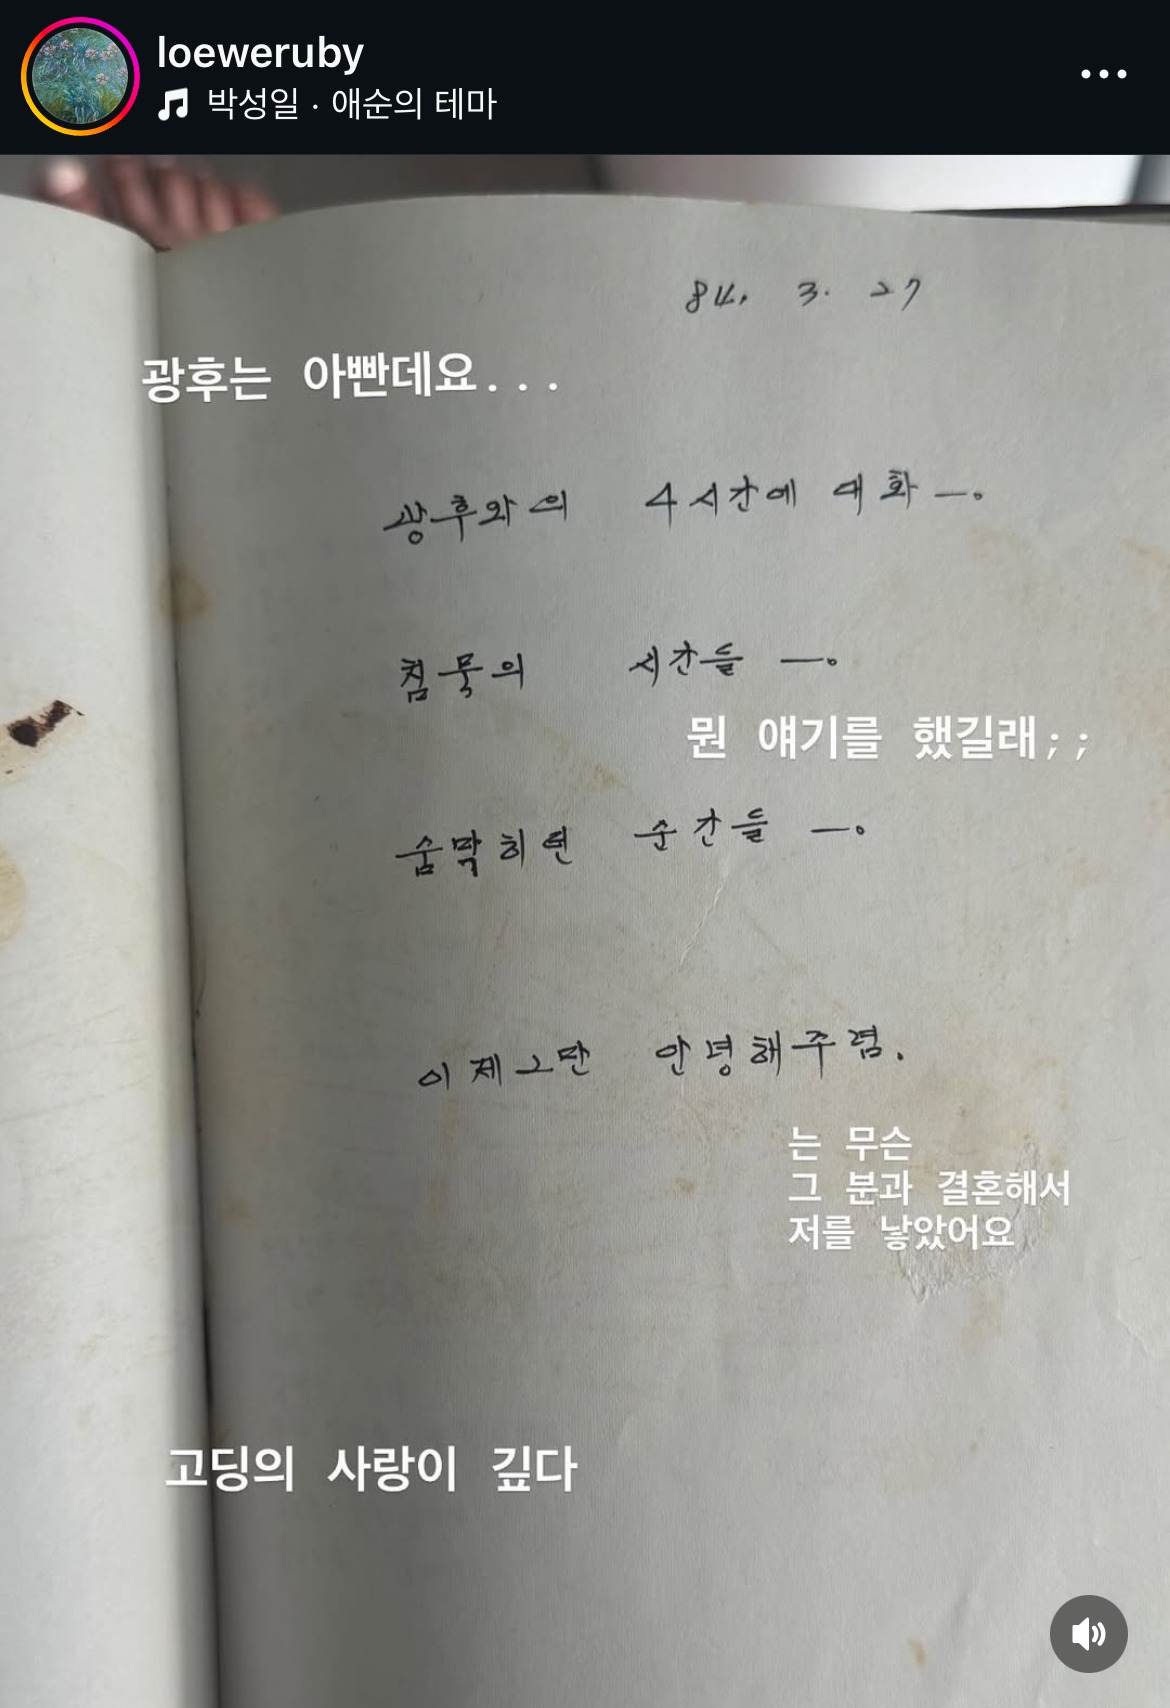 loeweruby
박성일 · 애순의 테마
84. 3. 27
광후는 아빤데요...
광후와의 4시간에 대화 —.
침묵의 시간들 —.
뭔 얘기를 했길래;;
숨막히던 순간들 —.
이제그만 안녕해주렴.
는 무슨
그 분과 결혼해서
저를 낳았어요
고딩의 사랑이 깊다